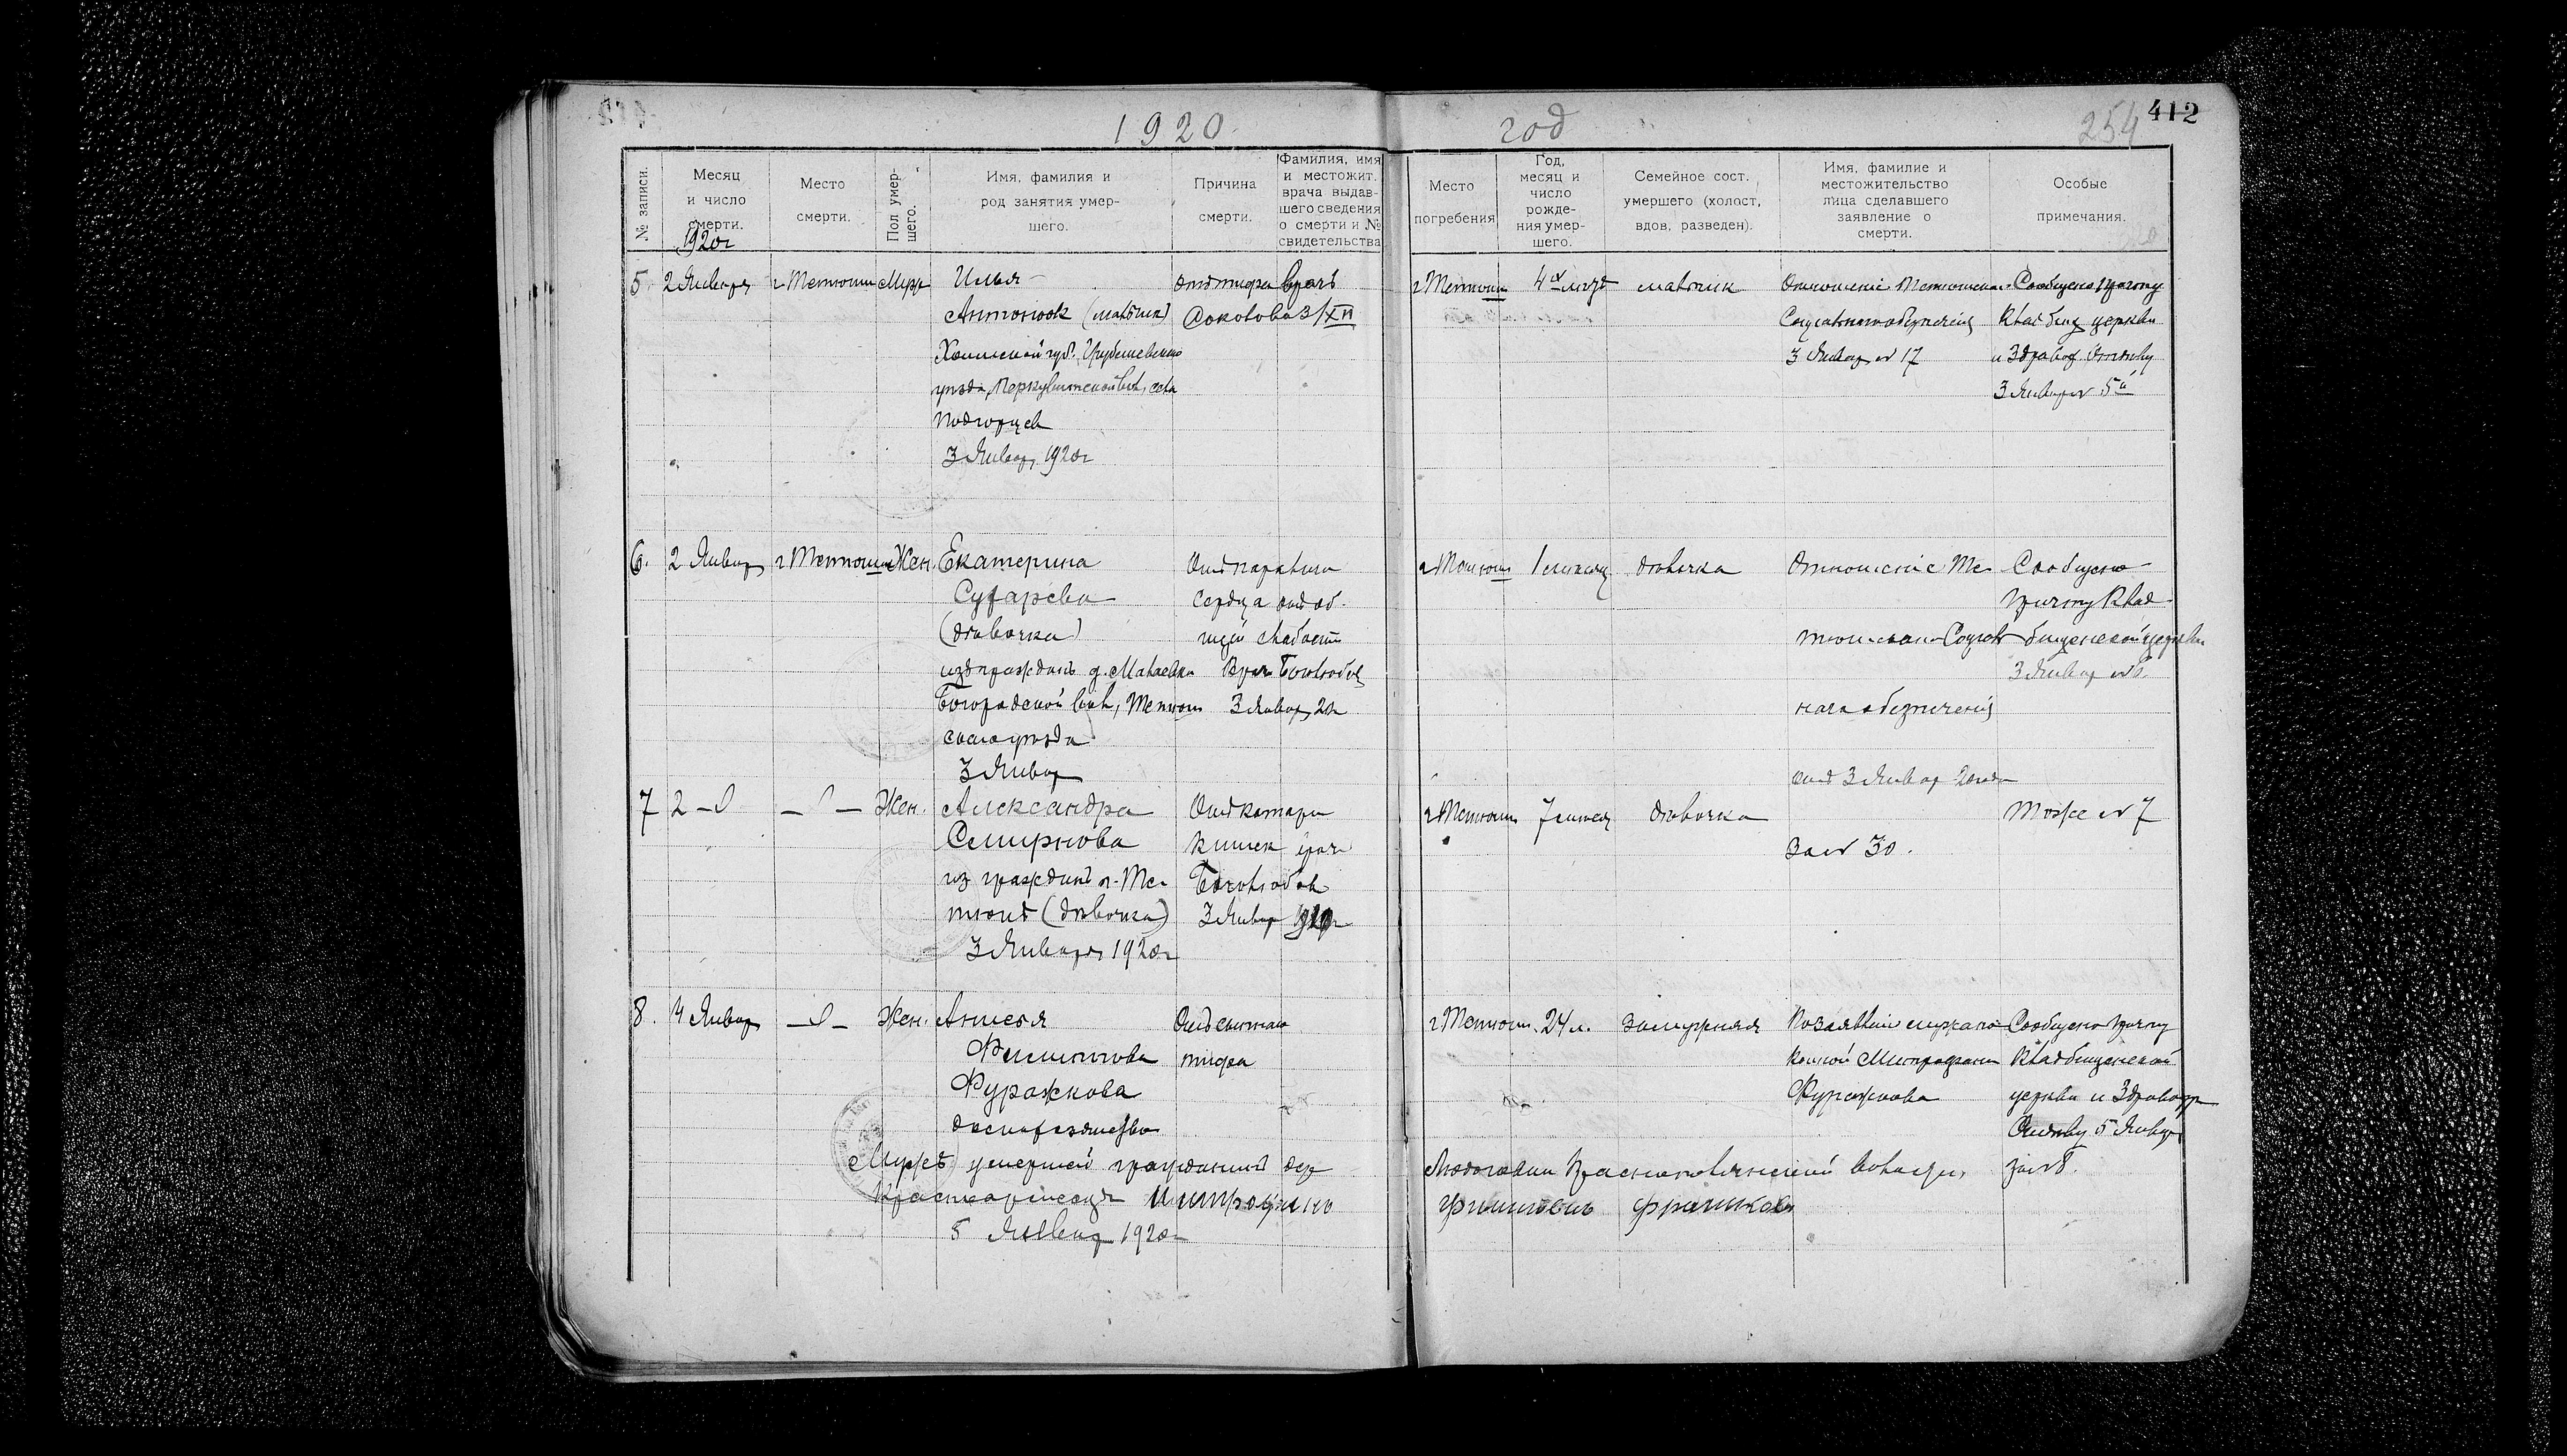 1920 год
254 412
№ записи.
Месяц
и число
смерти.
1920г
Место
смерти.
Пол умер-
шего.
Имя, фамилия и
род занятия умер-
шего.
Причина
смерти.
Фамилия, имя
и местожит.
врача выдав-
шего сведения
о смерти и №
свидетельства
Место
погребения
Год,
месяц и
число
рожде-
ния умер-
шего.
Семейное сост.
умершего (холост,
вдов, разведен).
Имя, фамилие и
местожительство
лица сделавшего
заявление о
смерти.
Особые
примечания.
5 2 Января г Тетюши Муж
Илья
Антонюк (мальчик)
Холмской губ. Грубешевского
уезда,
Подгорцев
3 Январ 1920г
от тифа врачъ
Соколова 3/XII
г Тетюши
4х летъ
мальчик
Отношение Тетюшскаго
Социальнаго обезпечения
3 Январ № 17
Сообщено причту
Кладбищ церкви
и Здравоо Отделу
3 Январ № 5й
6. 2 Январ г Тетюши Жен.
Екатерина
Сугарева
(девочка)
из гражданъ д.
Богородской вол, Тетюш
скаго уезда
3 Январ
От паралича
сердца от об-
щей слабости
Врач Боголюбов
3 Январ 20г
г Тетюши
1 месяц
девочка
Отношение Те-
тюшскаго Социал
наго обезпечения
от 3 Январ 20 года
за № 30.
Сообщено
причту Клад-
бищенской церкви
3 Январ № 6.
7 2 -"- -"- Жен.
Александра
Смирнова
из гражданъ г. Те-
тюшъ (девочка)
3 Января 1920г
От катара
кишек врач
Боголюбов
3 Январ 1920г
г Тетюши
7 месяц
девочка
Тоже № 7
8. 4 Январ -"- Жен.
Анисья
Филиппова
Фуражкова
домохозяйство
От сыпного
тифа
г Тетюши
24 л.
замужняя
По заявлению мужа по
койной Митрофана
Фуражкова
Сообщено причту
Кладбищенской
церкви и Здравоохр
Отделу 5 Январ
за № 8.
Мужъ умершей гражданин дер
волости,
красноармеец Митрофанъ
Филиппов
5 Январ 1920г